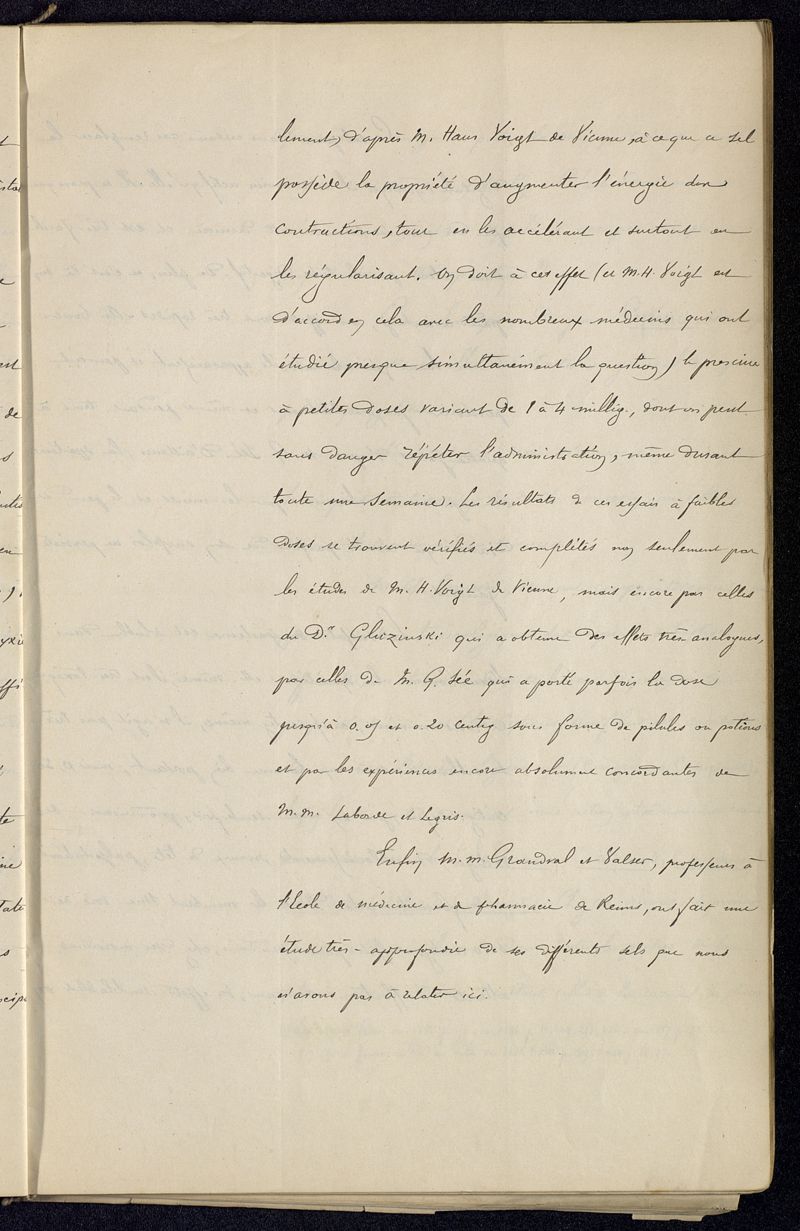 lement, d'après M. Hans Voigt de Vienne, à ce que ce sel
possède la propriété d'augmenter l'énergie des
contractions, tout en les accélérant et surtout en
les régularisant. On doit à cet effet (et M. H. Voigt est
d'accord en cela avec les nombreux médecins qui ont
étudié presque simultanément la question) le prescrire
à petites doses variant de 1 à 4 millig., dont on peut
sans danger répéter l'administration, même durant
toute une semaine. Les résultats de ces essais à faibles
doses se trouvent vérifiés et complétés non seulement par
les études de M. H. Voigt de Vienne, mais encore par celles
du Dr Gluzinski qui a obtenu des effets très-analogues,
par celles de M. G. Sée qui a porté parfois la dose
jusqu'à 0.05 et 0.20 centig sous forme de pilules ou potions
et par les expériences encore absolument concordantes de
M.M. Laborde et Legris.
Enfin M.M. Grandval et Valser, professeurs à
l'Ecole de médecine et de pharmacie de Reims, ont fait une
étude très-approfondie de ses différents sels que nous
n'avons pas à relater ici.